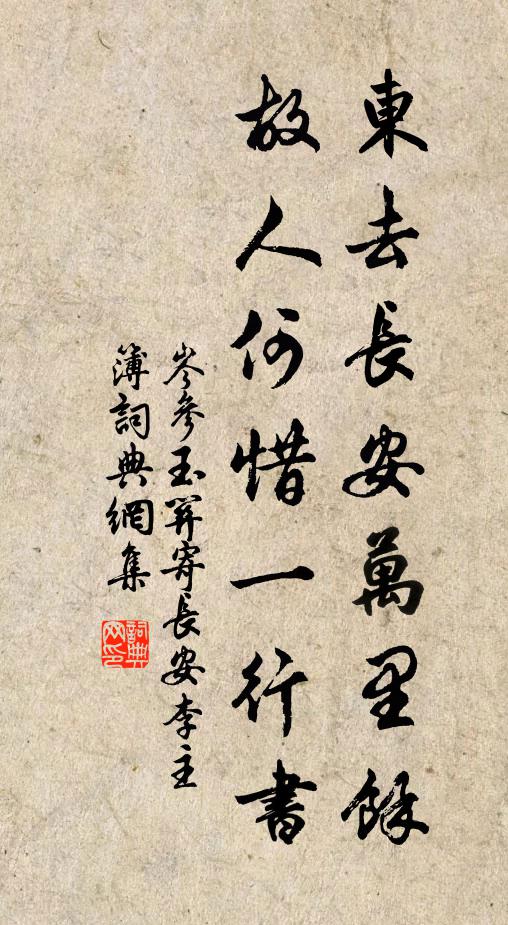 東去長安萬里餘
故人何惜一行書
岑參玉關寄長安李主
簿詞典網集
詞典
网印